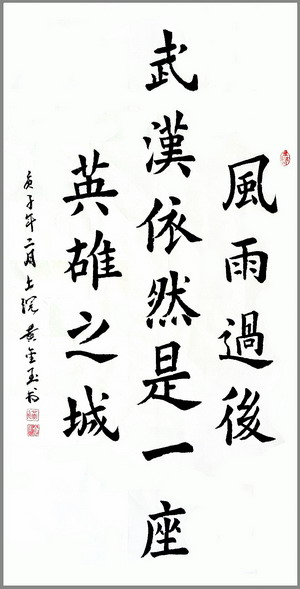 風雨過後
武漢依然是一座
英雄之城
庚子年二月上浣黄金玉书